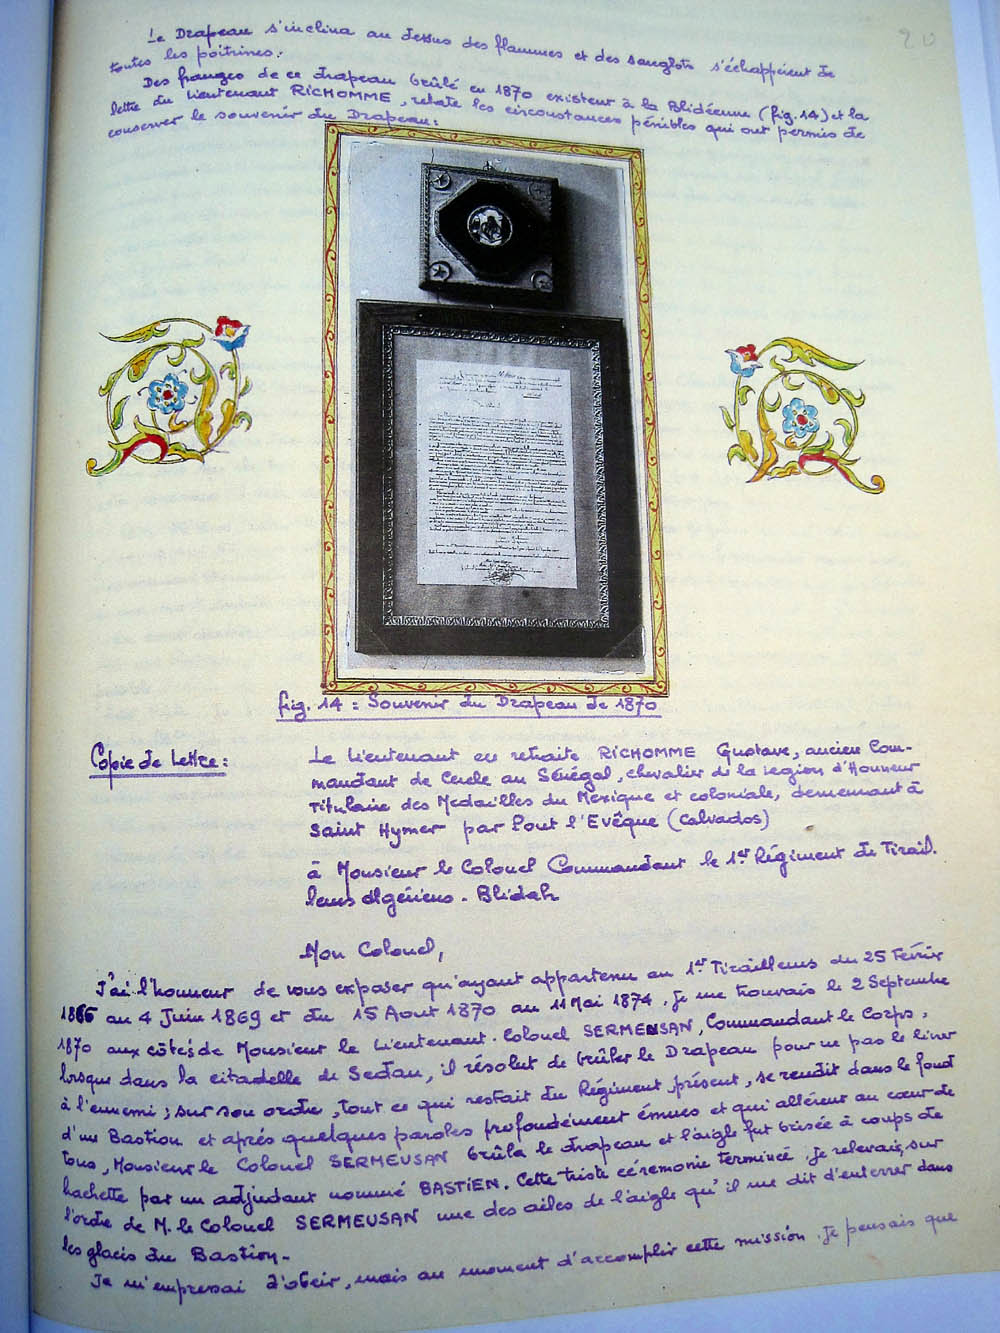 20
Le Drapeau s'inclina au dessus des flammes et des sanglots s'échappèrent de
toutes les poitrines.
Des franges de ce drapeau brûlé en 1870 existent à la Blidéenne (fig.14) et la
lettre du Lieutenant RICHOMME, relate les circonstances pénibles qui ont permis de
conserver le souvenir du Drapeau:
fig. 14 : Souvenir du Drapeau de 1870
Copie de Lettre :
Le Lieutenant en retraite RICHOMME Gustave, ancien Com-
mandant de Cercle au Sénégal, chevalier de la Légion d'Honneur
Titulaire des Medailles du Mexique et coloniale, demeurant à
Saint Hymer par Pont l'Evêque (Calvados)
à Monsieur le Colonel Commandant le 1er Régiment de Tirail.
leurs algériens. Blidah
Mon Colonel,
J'ai l'honneur de vous exposer qu'ayant appartenu au 1er Tirailleurs du 25 Février
1866 au 4 Juin 1869 et du 15 Aout 1870 au 11 Mai 1874, je me trouvais le 2 Septembre
1870 aux côtés de Monsieur le Lieutenant. Colonel SERMENSAN, Commandant le Corps,
lorsque dans la citadelle de Sedan, il résolut de brûler le Drapeau pour ne pas le livrer
à l'ennemi ; sur son ordre, tout ce qui restait du Régiment présent, se rendit dans le fond
d'un Bastion et après quelques paroles profondément émues et qui allèrent au cœur de
tous, Monsieur le Colonel SERMEUSAN brûla le drapeau et l'aigle fut brisée à coups de
hachette par un adjudant nommé BASTIEN. Cette triste céremonie terminée je relevais, sur
l'ordre de M. le Colonel SERMEUSAN une des ailes de l'aigle qu'il me dit d'enterrer dans
les glacis du Bastion.
Je m'empressai d'obeir, mais au moment d'accomplir cette mission je pensais que